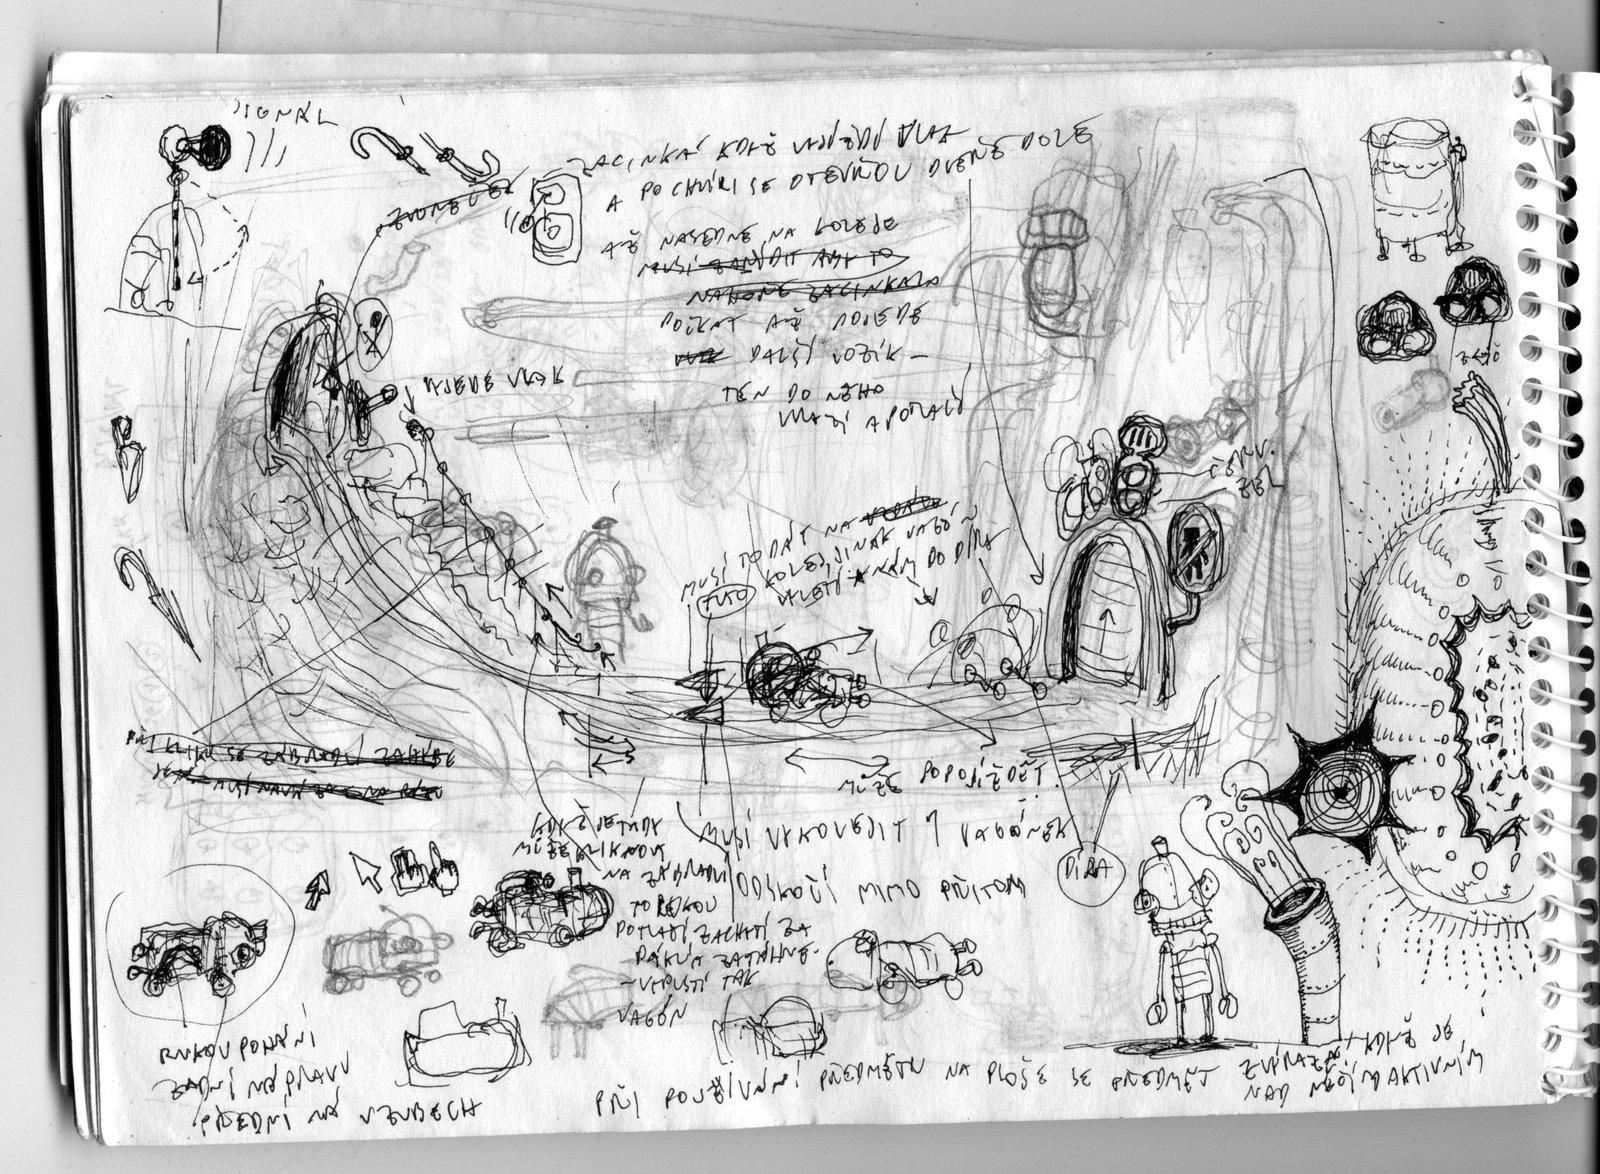 SIGNÁL
ZVONEČEK
ZACINKÁ KDYŽ VYJÍŽDÍ VLAK
A PO CHVÍLI SE OTEVŘOU DVEŘE DOLE
AŽ NASEDNE NA KOLEJE
MUSÍ ZAŘÍDIT ABY TO
NAHOŘE ZACINKALO
POČKAT AŽ DOJEDE
DALŠÍ VOZÍK –
TEN DO NĚHO
VRAZÍ A POTLAČÍ
VYJEDE VLAK
KLÍČ
ČERV.
MUSÍ TO DÁT NA
TUTO KOLEJ, JINAK VAGÓN
VLETÍ K NÁM DO DÍRY
PŘI KLIKU SE ZÁBRADLÍ ZAHÝBE
MŮŽE POPOJÍŽDĚT.
KDYŽ JE TADY
MŮŽE KLIKNOUT
NA ZÁBRADLÍ
TO REKOU
POTLAČÍ ZACHYTÍ ZA
PÁKU A ZATÁHNE –
– VYPUSTÍ TAK
VAGÓN
MUSÍ VYKOLEJIT 1 VAGÓNEK
ODSKOČÍ MIMO PŘITOM
DÍRA
RUKOU POHÁNÍ
ZADNÍ NÁPRAVU
PŘEDNÍ MÁ V ZUBECH
PŘI POUŽÍVÁNÍ PŘEDMĚTU NA PLOŠE SE PŘEDMĚT ZVÝRAZNÍ KDYŽ JE
NAD NĚČÍM AKTIVNÍM